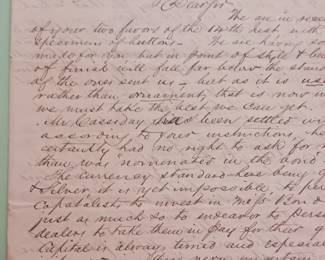 Dear Sir
We are in rece
of your two favors of the 14th Inst with
specimens of buttons — We are having so
made for you but in point of style &
& finish will fall far below the stan
of the ones sent us — but as it is use
rather than ornament, that is now
we must take the best we can get.
Mr Cassiday has been settled wi
according to your instructions, he
certainly had no right to ask for
than was nominated in the bond
The currency standard here being
& Silver, it is yet impossible, to per
capatalists to invest in Miss. Bonds
just as much so to endeavor to persu
dealers to take them in pay for their g
Capital is always timid and especial
these very uncertain